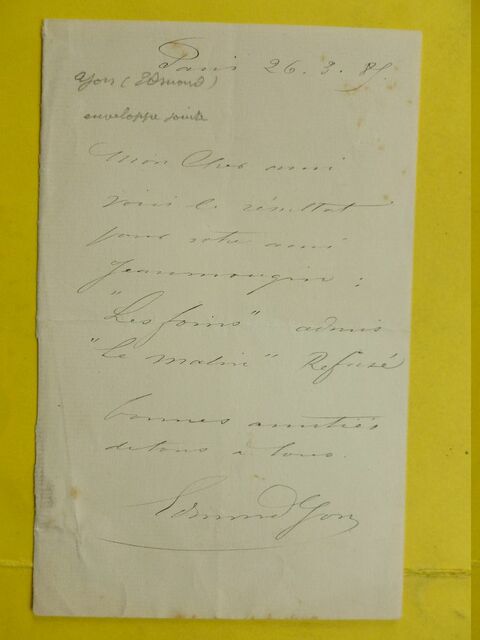 Paris 26. 3. 85.
Yon (Edmond)
enveloppe jointe
Mon Cher ami
voici le résultat
pour votre ami
Jeanmougin :
"Les foins" admis
"Le matin" Refusé
bonnes amitiés
de tous à tous.
Edmond Yon